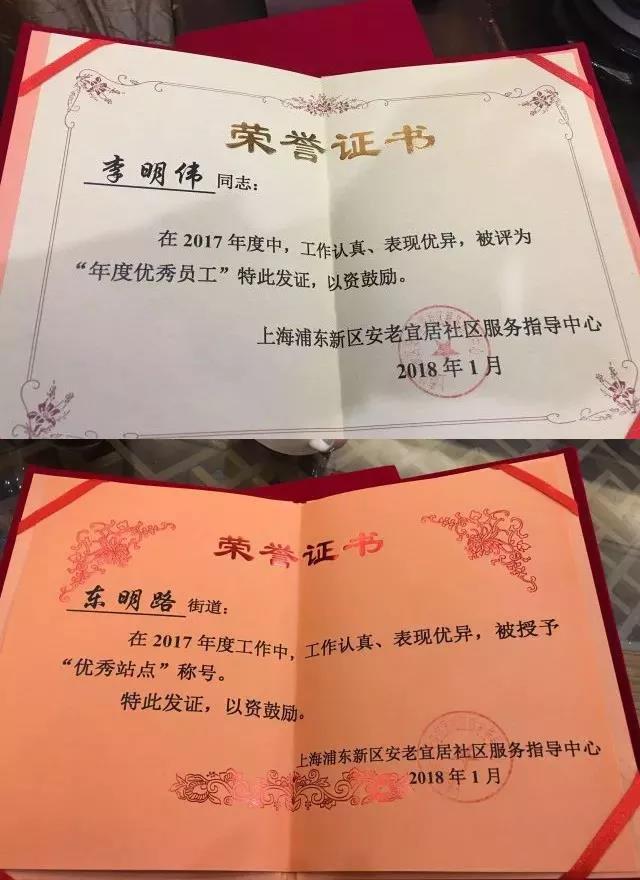 荣誉证书
李明伟 同志：
在 2017 年度中，工作认真、表现优异，被评为
“年度优秀员工”特此发证，以资鼓励。
上海浦东新区安老宜居社区服务指导中心
2018 年 1 月
荣誉证书
东明路 街道：
在 2017 年度工作中，工作认真、表现优异，被授予
“优秀站点”称号。
特此发证，以资鼓励。
上海浦东新区安老宜居社区服务指导中心
2018 年 1 月